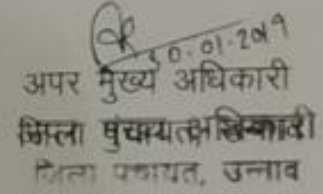 30.01.2019
अपर मुख्य अधिकारी
जिला पंचायत
जिला पंचायत, उन्नाव